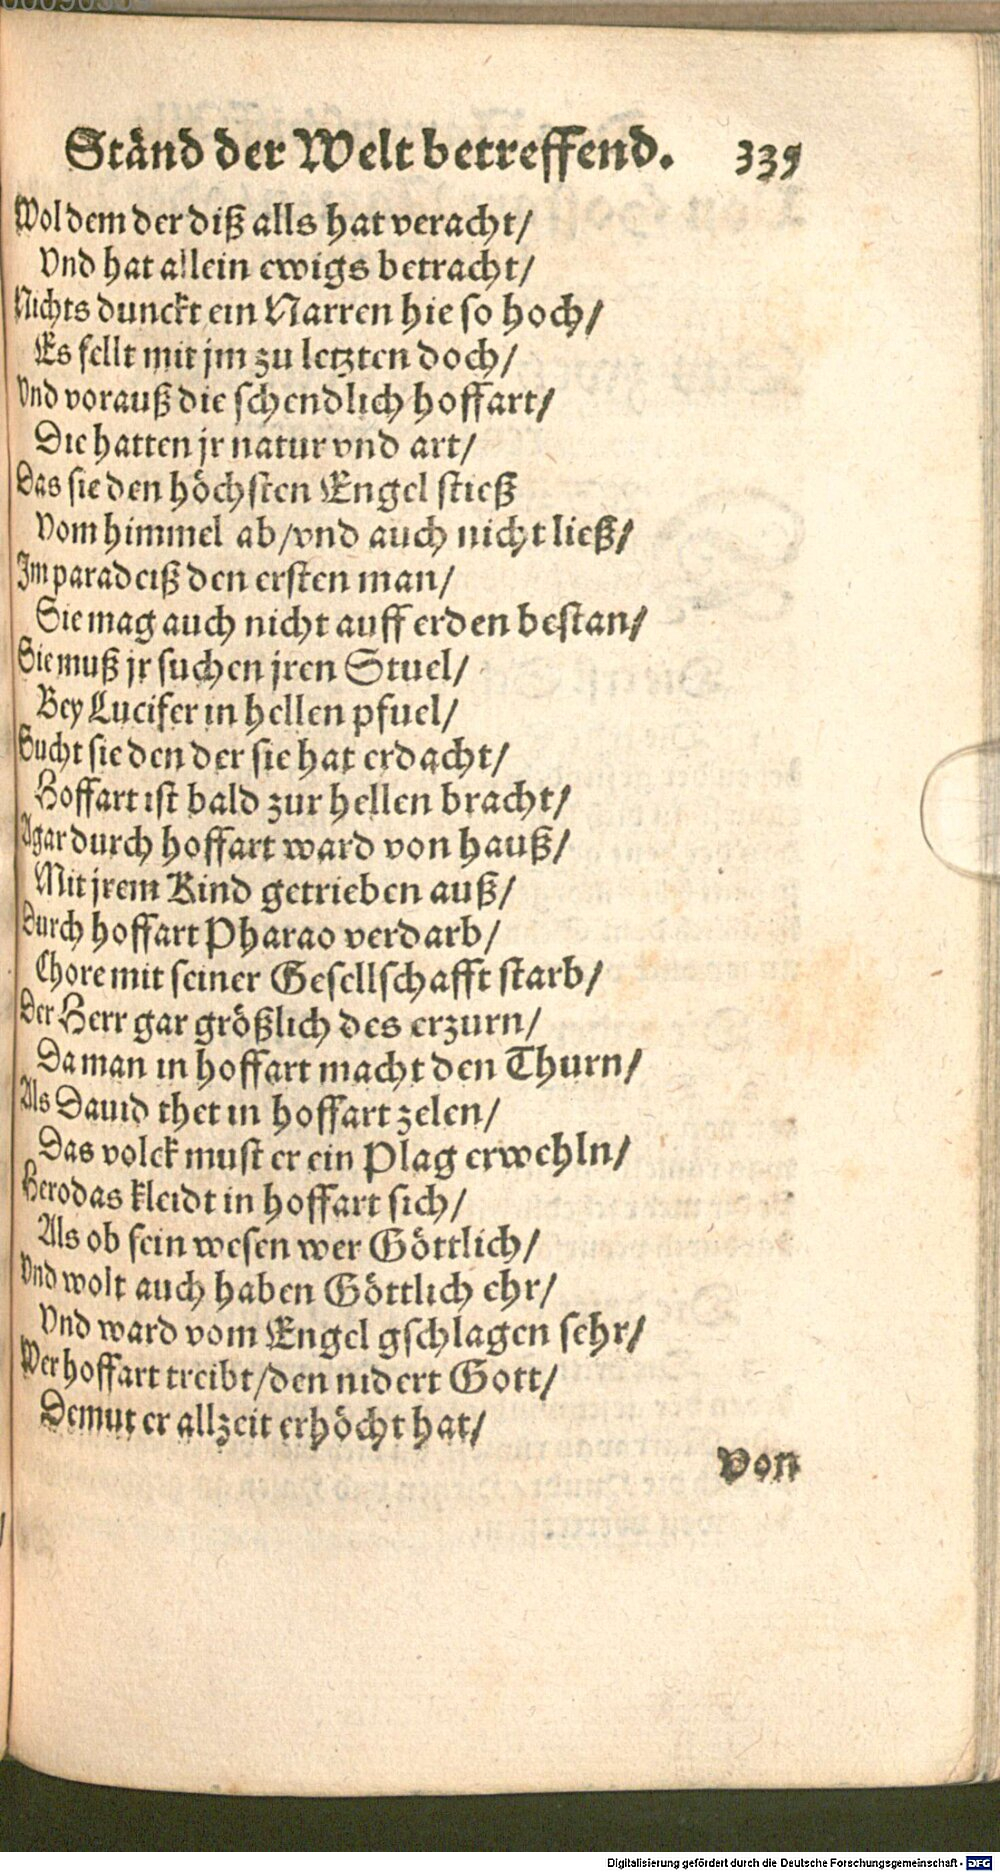 Ständ der Welt betreffend. 339
Wol dem der diß alls hat veracht/
Vnd hat allein ewigs betracht/
Nichts dunckt ein Narren hie so hoch/
Es fellt mit jm zu letzten doch/
Vnd vorauß die schendlich hoffart/
Die hatten jr natur vnd art/
Das sie den höchsten Engel stieß
Vom himmel ab/vnd auch nicht ließ/
Im paradeiß den ersten man/
Sie mag auch nicht auff erden bestan/
Sie muß jr suchen jren Stuel/
Bey Lucifer in hellen pfuel/
Sucht sie den der sie hat erdacht/
Hoffart ist bald zur hellen bracht/
Agar durch hoffart ward von hauß/
Mit jrem Kind getrieben auß/
Durch hoffart Pharao verdarb/
Chore mit seiner Gesellschafft starb/
Der Herr gar größlich des erzurn/
Da man in hoffart macht den Thurn/
Als Dauid thet in hoffart zelen/
Das volck must er ein Plag erwehln/
Herodas kleidt in hoffart sich/
Als ob sein wesen wer Göttlich/
Vnd wolt auch haben Göttlich ehr/
Vnd ward vom Engel gschlagen sehr/
Wer hoffart treibt/den nidert Gott/
Demut er allzeit erhöcht hat/
Von
Digitalisierung gefördert durch die Deutsche Forschungsgemeinschaft - DFG